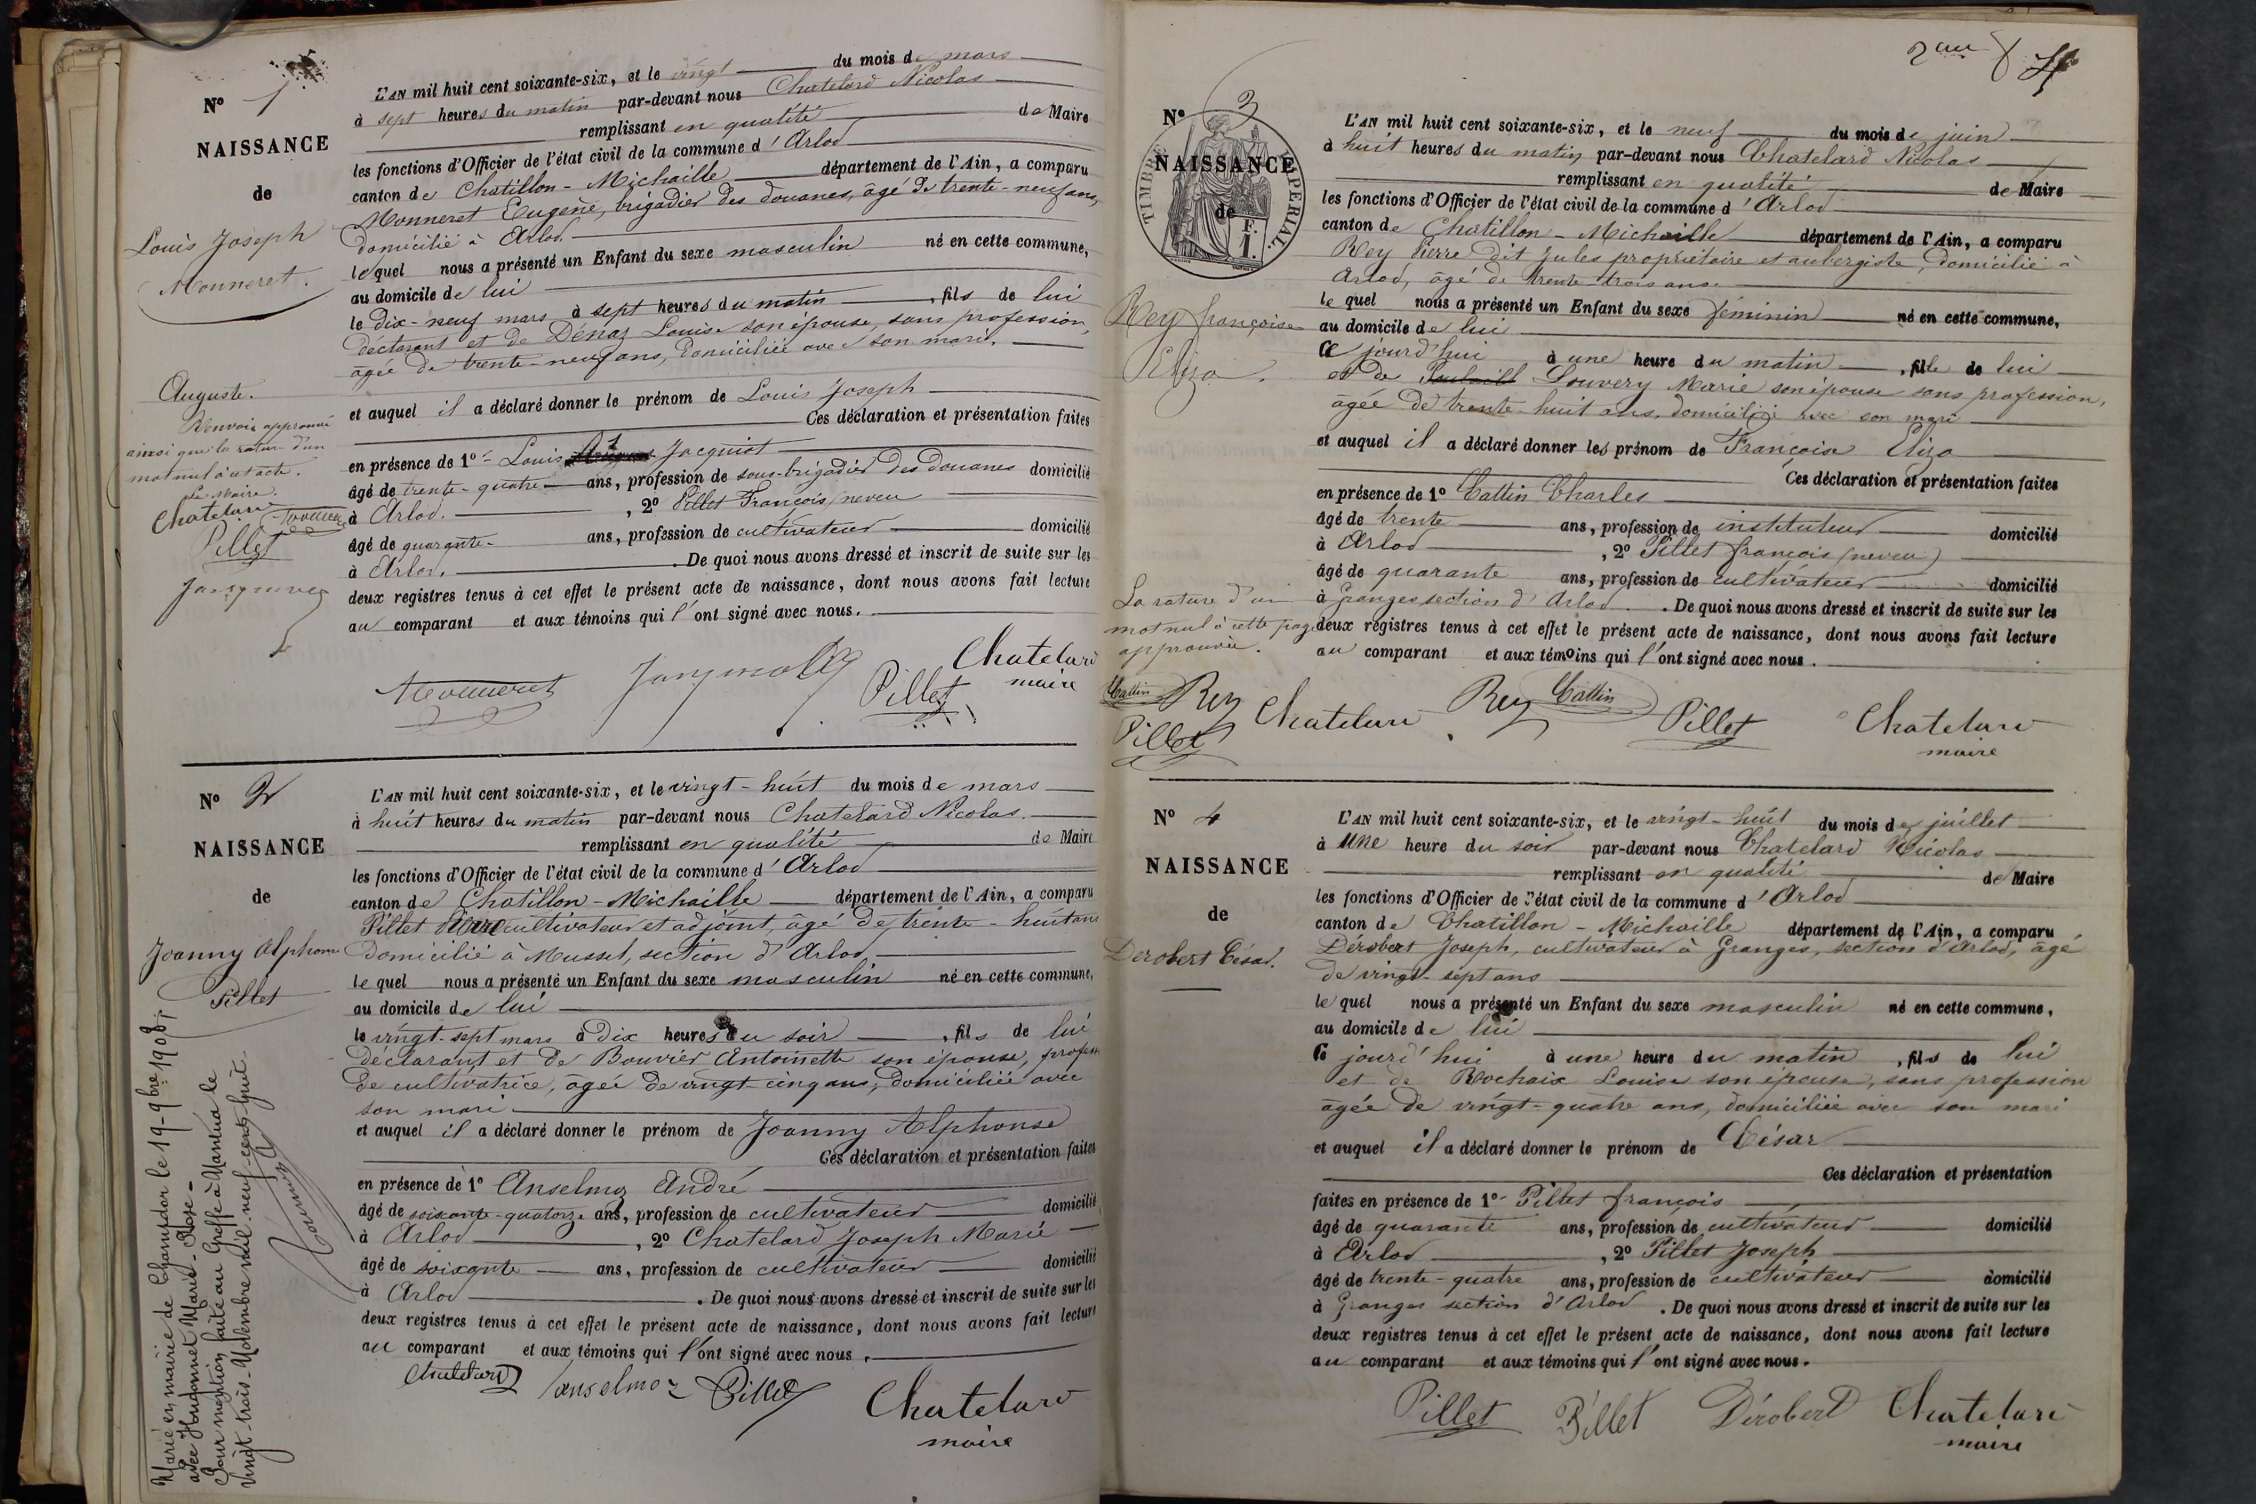 N° 1
NAISSANCE
de
Louis Joseph
Monneret.
Auguste.
Renvoi approuvé
ainsi que la rature d'un
mot nul à cet acte.
Le Maire.
Chatelard
Monneret
Pillet
L'AN mil huit cent soixante-six, et le vingt du mois de mars
à sept heures du matin par-devant nous Chatelard Nicolas
remplissant en qualité de Maire
les fonctions d'Officier de l'état civil de la commune d'Arlod
canton de Chatillon-Michaille département de l'Ain, a comparu
Monneret Eugène, brigadier des douanes, âgé de trente-neuf ans,
domicilié à Arlod.
lequel nous a présenté un Enfant du sexe masculin né en cette commune,
au domicile de lui
le dix-neuf mars à sept heures du matin, fils de lui
déclarant et de Dénaz Louise son épouse, sans profession,
âgée de trente-neuf ans, domiciliée avec son mari.
et auquel il a déclaré donner le prénom de Louis Joseph
Ces déclaration et présentation faites
en présence de 1° Louis Jacquiot
âgé de trente-quatre ans, profession de sous-brigadier des douanes domicilié
à Arlod. , 2° Pillet François, neveu
âgé de quarante ans, profession de cultivateur domicilié
à Arlod. . De quoi nous avons dressé et inscrit de suite sur les
deux registres tenus à cet effet le présent acte de naissance, dont nous avons fait lecture
au comparant et aux témoins qui l'ont signé avec nous.
Monneret Pillet Chatelard
maire
N° 2
NAISSANCE
de
Joanny Alphonse
Pillet
Marié en mairie de Champdor le 19-9bre 1908,
avec Hugonnet Marie-Rose-
Pour mention faite au Greffe à Nantua le
vingt-trois-Novembre mil neuf-cent-huit.
L'AN mil huit cent soixante-six, et le vingt-huit du mois de mars
à huit heures du matin par-devant nous Chatelard Nicolas.
remplissant en qualité de Maire
les fonctions d'Officier de l'état civil de la commune d'Arlod
canton de Chatillon-Michaille département de l'Ain, a comparu
Pillet cultivateur et adjoint, âgé de trente-huit ans
domicilié à Mussel, section d'Arlod,
lequel nous a présenté un Enfant du sexe masculin né en cette commune,
au domicile de lui
le vingt-sept mars à dix heures du soir, fils de lui
déclarant et de Bouvier Antoinette son épouse, profession
de cultivatrice, âgée de vingt-cinq ans, domiciliée avec
son mari
et auquel il a déclaré donner le prénom de Joanny Alphonse
Ces déclaration et présentation faites
en présence de 1° Anselmoz André
âgé de soixante-quatorze ans, profession de cultivateur domicilié
à Arlod , 2° Chatelard Joseph Marie
âgé de soixante ans, profession de cultivateur domicilié
à Arlod . De quoi nous avons dressé et inscrit de suite sur les
deux registres tenus à cet effet le présent acte de naissance, dont nous avons fait lecture
au comparant et aux témoins qui l'ont signé avec nous.
Chatelard anselmoz Pillet Chatelard
maire
N° 3
NAISSANCE
de
TIMBRE IMPÉRIAL.
1 F.
Rey françoise
Eliza.
La rature d'un
mot nul à cette page
approuvée.
Cattin Rey
Pillet Chatelard
L'AN mil huit cent soixante-six, et le neuf du mois de juin
à huit heures du matin par-devant nous Chatelard Nicolas
remplissant en qualité de Maire
les fonctions d'Officier de l'état civil de la commune d'Arlod
canton de Chatillon-Michaille département de l'Ain, a comparu
Rey Pierre dit Jules propriétaire et aubergiste, domicilié à
Arlod, âgé de trente trois ans.
lequel nous a présenté un Enfant du sexe féminin né en cette commune,
au domicile de lui
Ce jourd'hui à une heure du matin, fille de lui
et de Louvery Marie son épouse sans profession,
âgée de trente-huit ans, domiciliée avec son mari
et auquel il a déclaré donner les prénom de Françoise Eliza
Ces déclaration et présentation faites
en présence de 1° Cattin Charles
âgé de trente ans, profession de instituteur domicilié
à Arlod , 2° Pillet françois (neveu)
âgé de quarante ans, profession de cultivateur domicilié
à Granges section d'Arlod . De quoi nous avons dressé et inscrit de suite sur les
deux registres tenus à cet effet le présent acte de naissance, dont nous avons fait lecture
au comparant et aux témoins qui l'ont signé avec nous.
Rey Cattin Pillet Chatelard
maire
N° 4
NAISSANCE
de
Dérobert César.
L'AN mil huit cent soixante-six, et le vingt-huit du mois de juillet
à une heure du soir par-devant nous Chatelard Nicolas
remplissant en qualité de Maire
les fonctions d'Officier de l'état civil de la commune d'Arlod
canton de Chatillon-Michaille département de l'Ain, a comparu
Dérobert Joseph, cultivateur à Granges, section d'Arlod, âgé
de vingt-sept ans
lequel nous a présenté un Enfant du sexe masculin né en cette commune,
au domicile de lui
Ce jourd'hui à une heure du matin, fils de lui
et de Rochaix Louise son épouse, sans profession
âgée de vingt-quatre ans, domiciliée avec son mari
et auquel il a déclaré donner le prénom de César
Ces déclaration et présentation
faites en présence de 1° Pillet françois
âgé de quarante ans, profession de cultivateur domicilié
à Arlod , 2° Pillet Joseph
âgé de trente-quatre ans, profession de cultivateur domicilié
à Granges section d'Arlod . De quoi nous avons dressé et inscrit de suite sur les
deux registres tenus à cet effet le présent acte de naissance, dont nous avons fait lecture
au comparant et aux témoins qui l'ont signé avec nous.
Pillet Pillet Dérobert Chatelard
maire